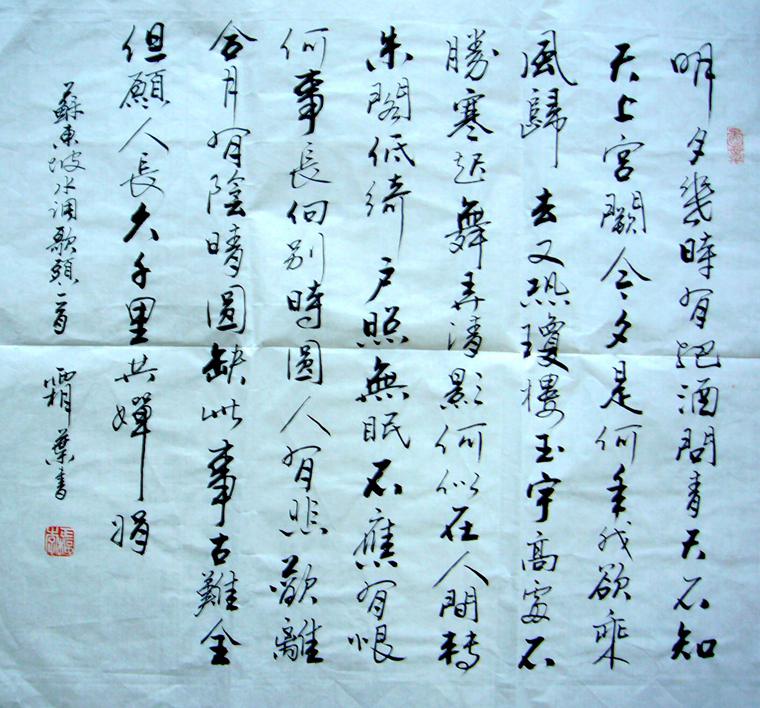 明夕幾時有把酒問青天不知
天上宮闕今夕是何年我欲乘
風歸去又恐瓊樓玉宇高處不
勝寒起舞弄清影何似在人間轉
朱閣低綺戶照無眠不應有恨
何事長向別時圓人有悲歡離
合月有陰晴圓缺此事古難全
但願人長久千里共嬋娟
蘇東坡水调歌頭一首 霜葉書